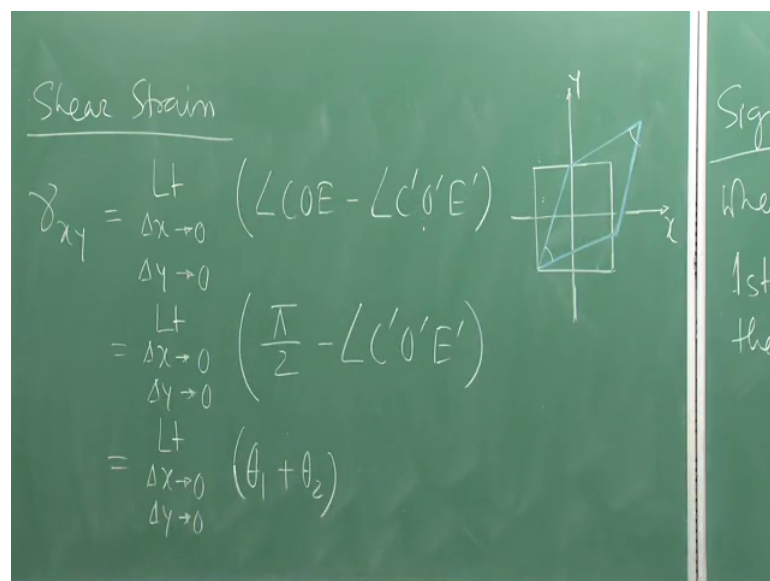 Shear Strain
γxy = Lt Δx→0 Δy→0 (∠COE - ∠C'O'E')
= Lt Δx→0 Δy→0 (π/2 - ∠C'O'E')
= Lt Δx→0 Δy→0 (θ1 + θ2)
Y
x
Sig
Whe
1st
the